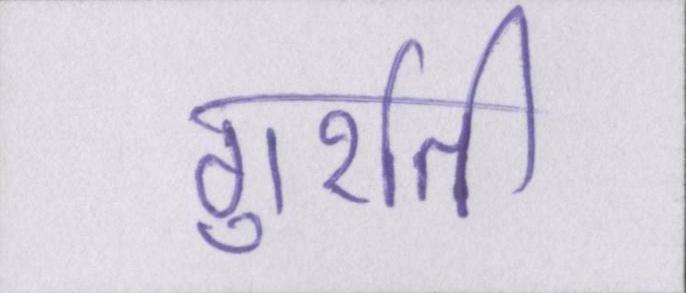 गुर्राती